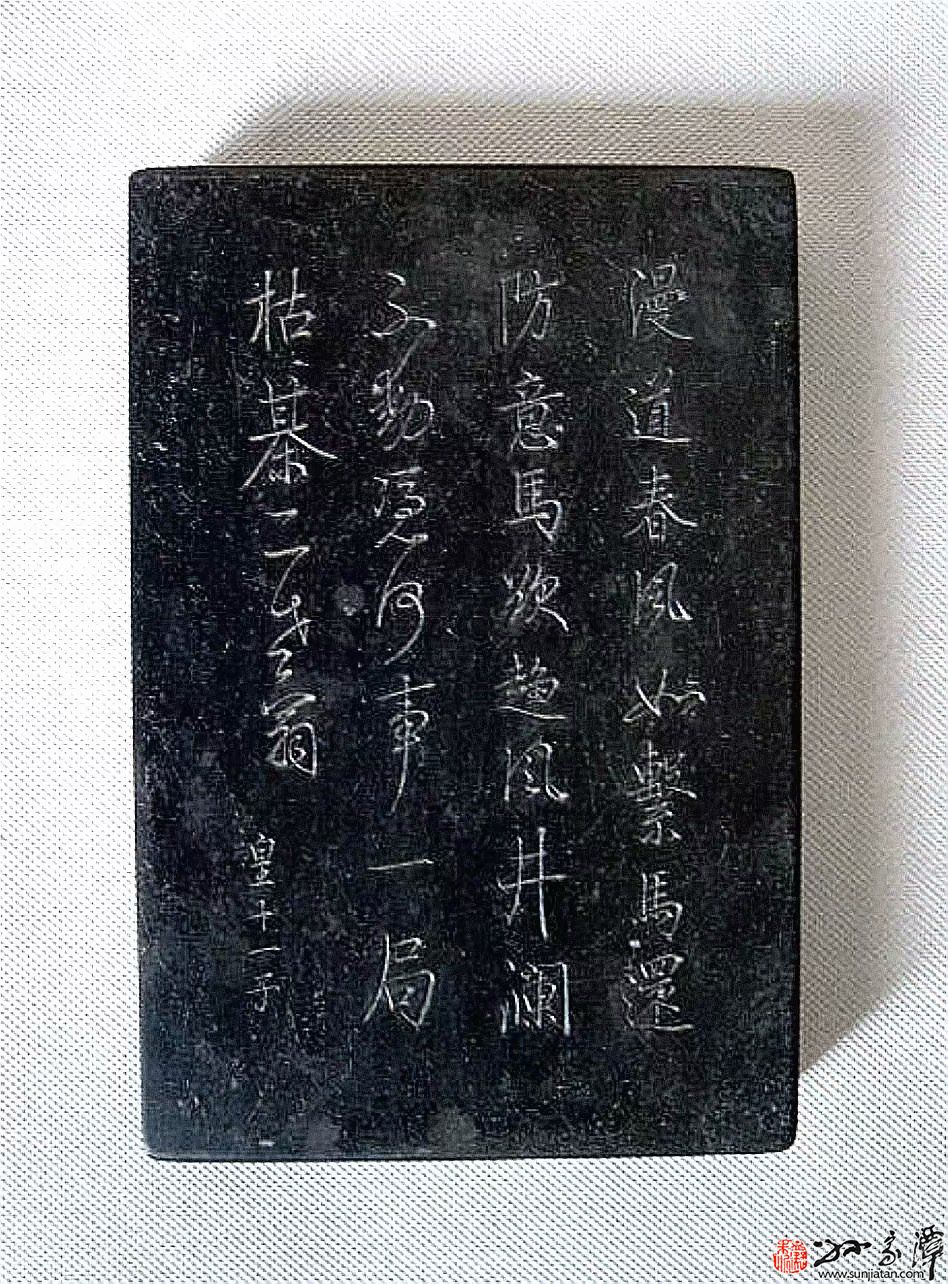 漫道春風如繫馬還
防意馬欲趨風井瀾
不動憑何事一局
枯棊一老翁
皇十一子
孙家潭
www.sunjiatan.com